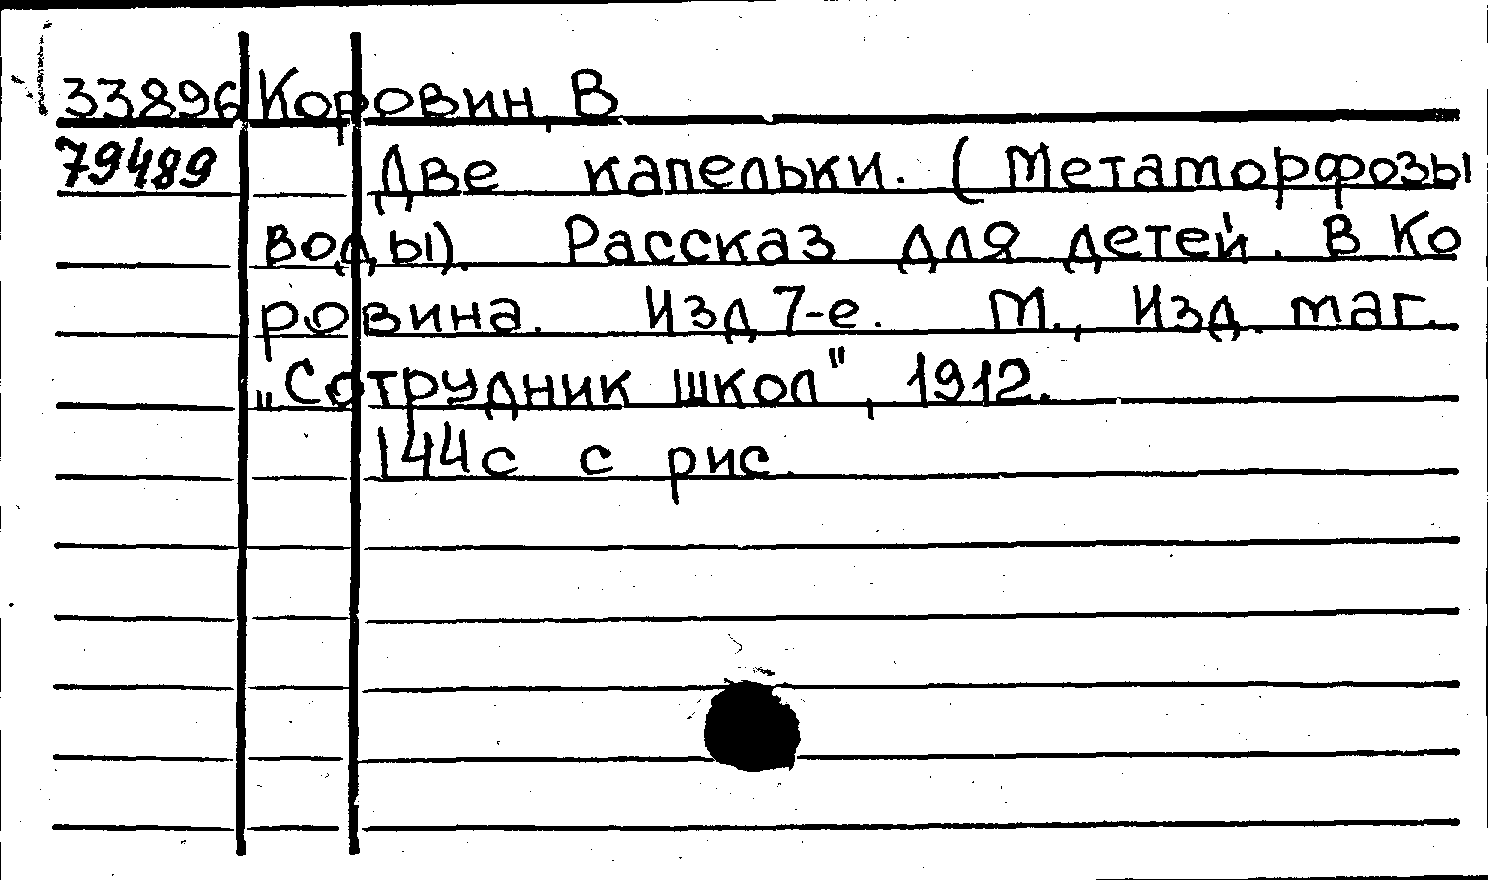 33896 Коровин, В
79489 Две капельки. (Метаморфозы
воды). Рассказ для детей. В Ко
ровина. Изд 7-е. М., Изд. маг.
„Сотрудник школ", 1912.
144с с рис.